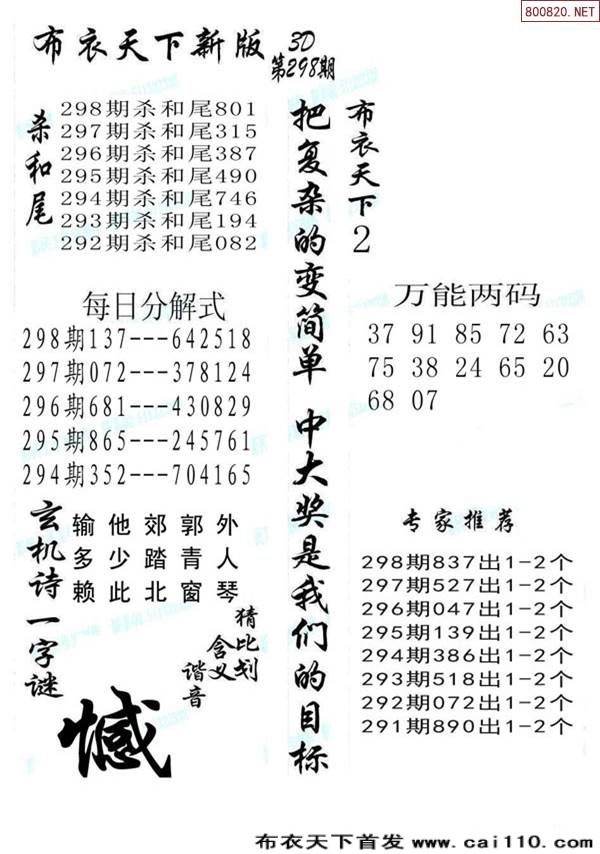 800820.NET
布衣天下新版
3D
第298期
杀和尾
298期杀和尾801
297期杀和尾315
296期杀和尾387
295期杀和尾490
294期杀和尾746
293期杀和尾194
292期杀和尾082
每日分解式
298期137---642518
297期072---378124
296期681---430829
295期865---245761
294期352---704165
玄机诗一字谜
输他郊郭外
多少踏青人
赖此北窗琴
猜比划
含义
谐音
憾
把复杂的变简单 中大奖是我们的目标
布衣天下2
万能两码
37 91 85 72 63
75 38 24 65 20
68 07
专家推荐
298期837出1-2个
297期527出1-2个
296期047出1-2个
295期139出1-2个
294期386出1-2个
293期518出1-2个
292期072出1-2个
291期890出1-2个
布衣天下首发 www.cai110.com